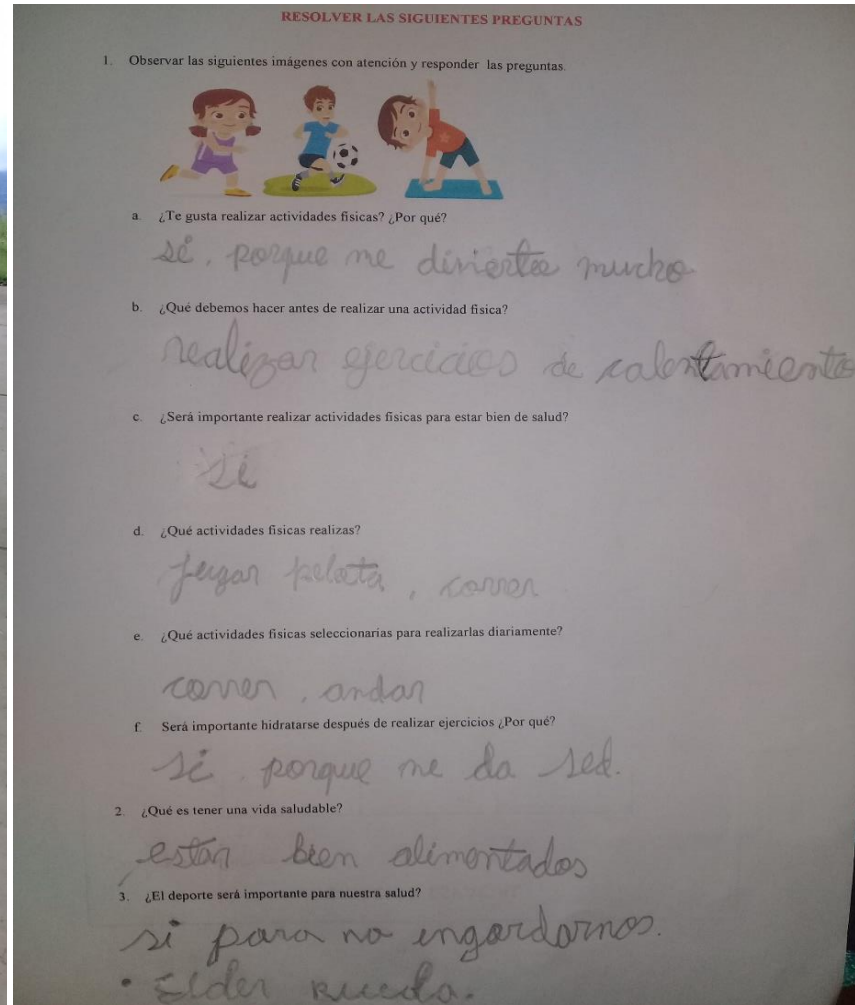 RESOLVER LAS SIGUIENTES PREGUNTAS
1. Observar las siguientes imágenes con atención y responder las preguntas.
a. ¿Te gusta realizar actividades físicas? ¿Por qué?
sí, porque me divierte mucho
b. ¿Qué debemos hacer antes de realizar una actividad física?
realizar ejercicios de calentamiento
c. ¿Será importante realizar actividades físicas para estar bien de salud?
si
d. ¿Qué actividades físicas realizas?
jugar pelota, correr
e. ¿Qué actividades físicas seleccionarías para realizarlas diariamente?
correr, andar
f. Será importante hidratarse después de realizar ejercicios ¿Por qué?
sí, porque me da sed.
2. ¿Qué es tener una vida saludable?
estar bien alimentados
3. ¿El deporte será importante para nuestra salud?
si para no engordarnos.
• Elder Rueda.